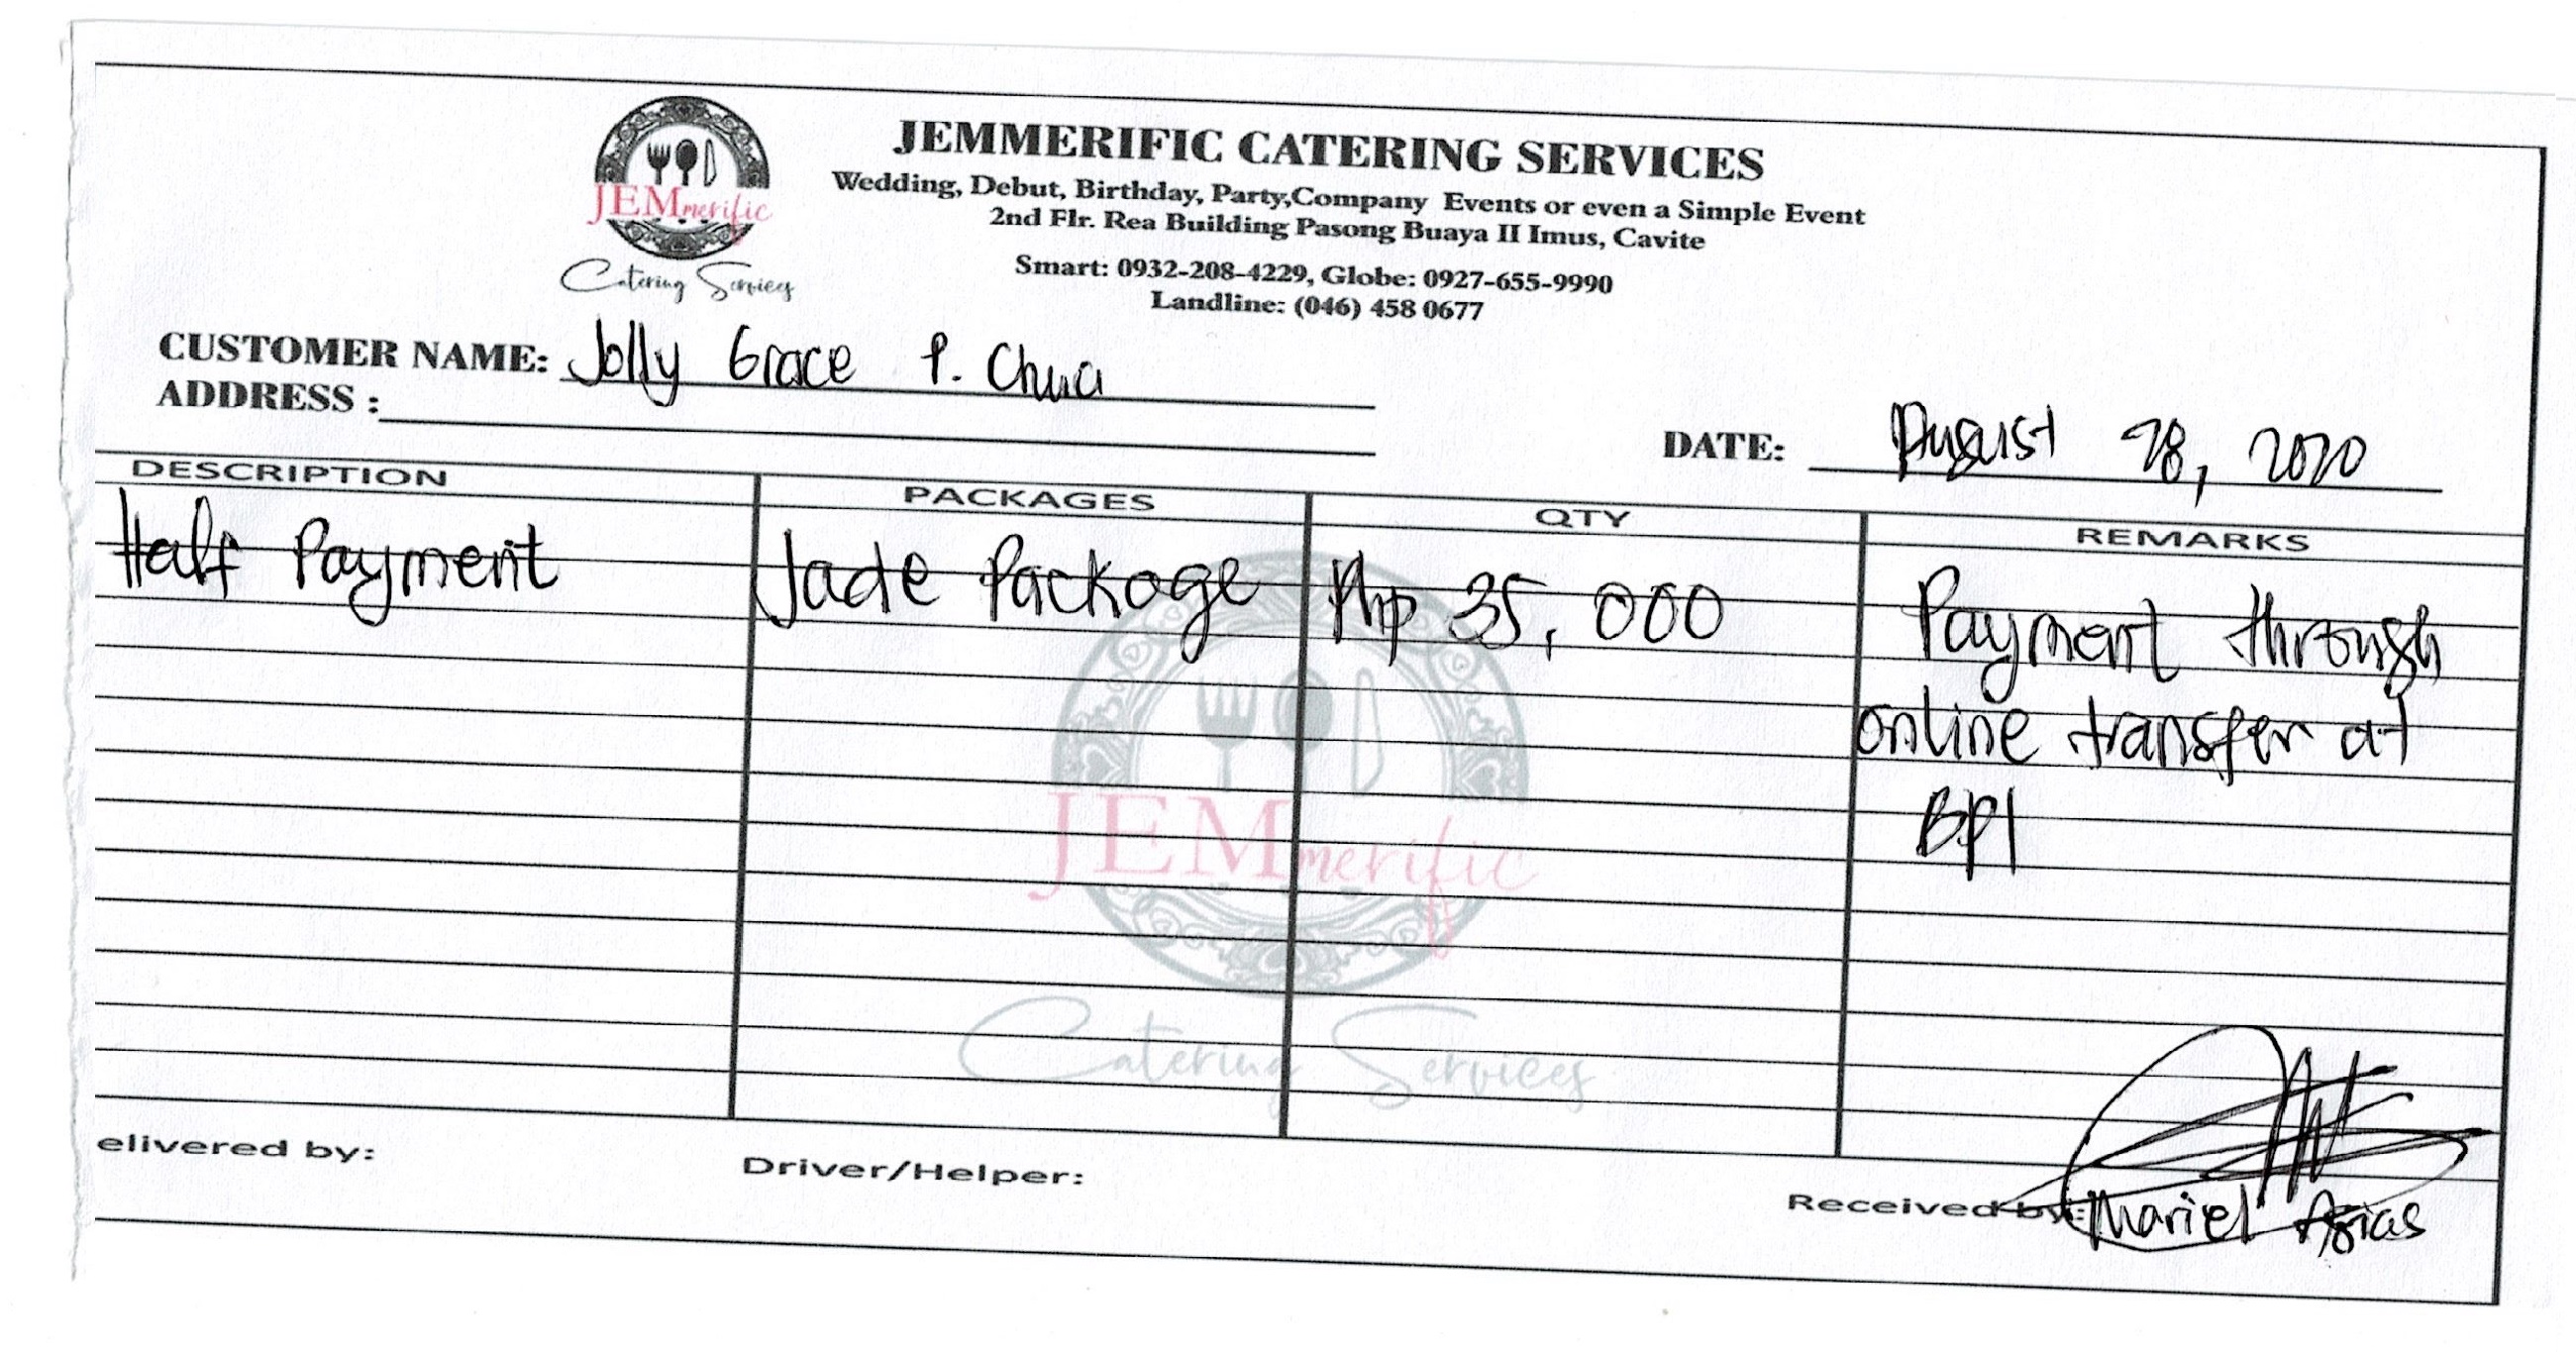 JEMmerific
Catering Services
JEMMERIFIC CATERING SERVICES
Wedding, Debut, Birthday, Party,Company Events or even a Simple Event
2nd Flr. Rea Building Pasong Buaya II Imus, Cavite
Smart: 0932-208-4229, Globe: 0927-655-9990
Landline: (046) 458 0677
CUSTOMER NAME: Jolly Grace P. Chua
ADDRESS :
DATE: August 28, 2020
DESCRIPTION PACKAGES QTY REMARKS
Half Payment Jade Package Php 35,000 Payment through
online transfer at
BPI
JEMmerific
Catering Services
elivered by: Driver/Helper: Received by: Mariel